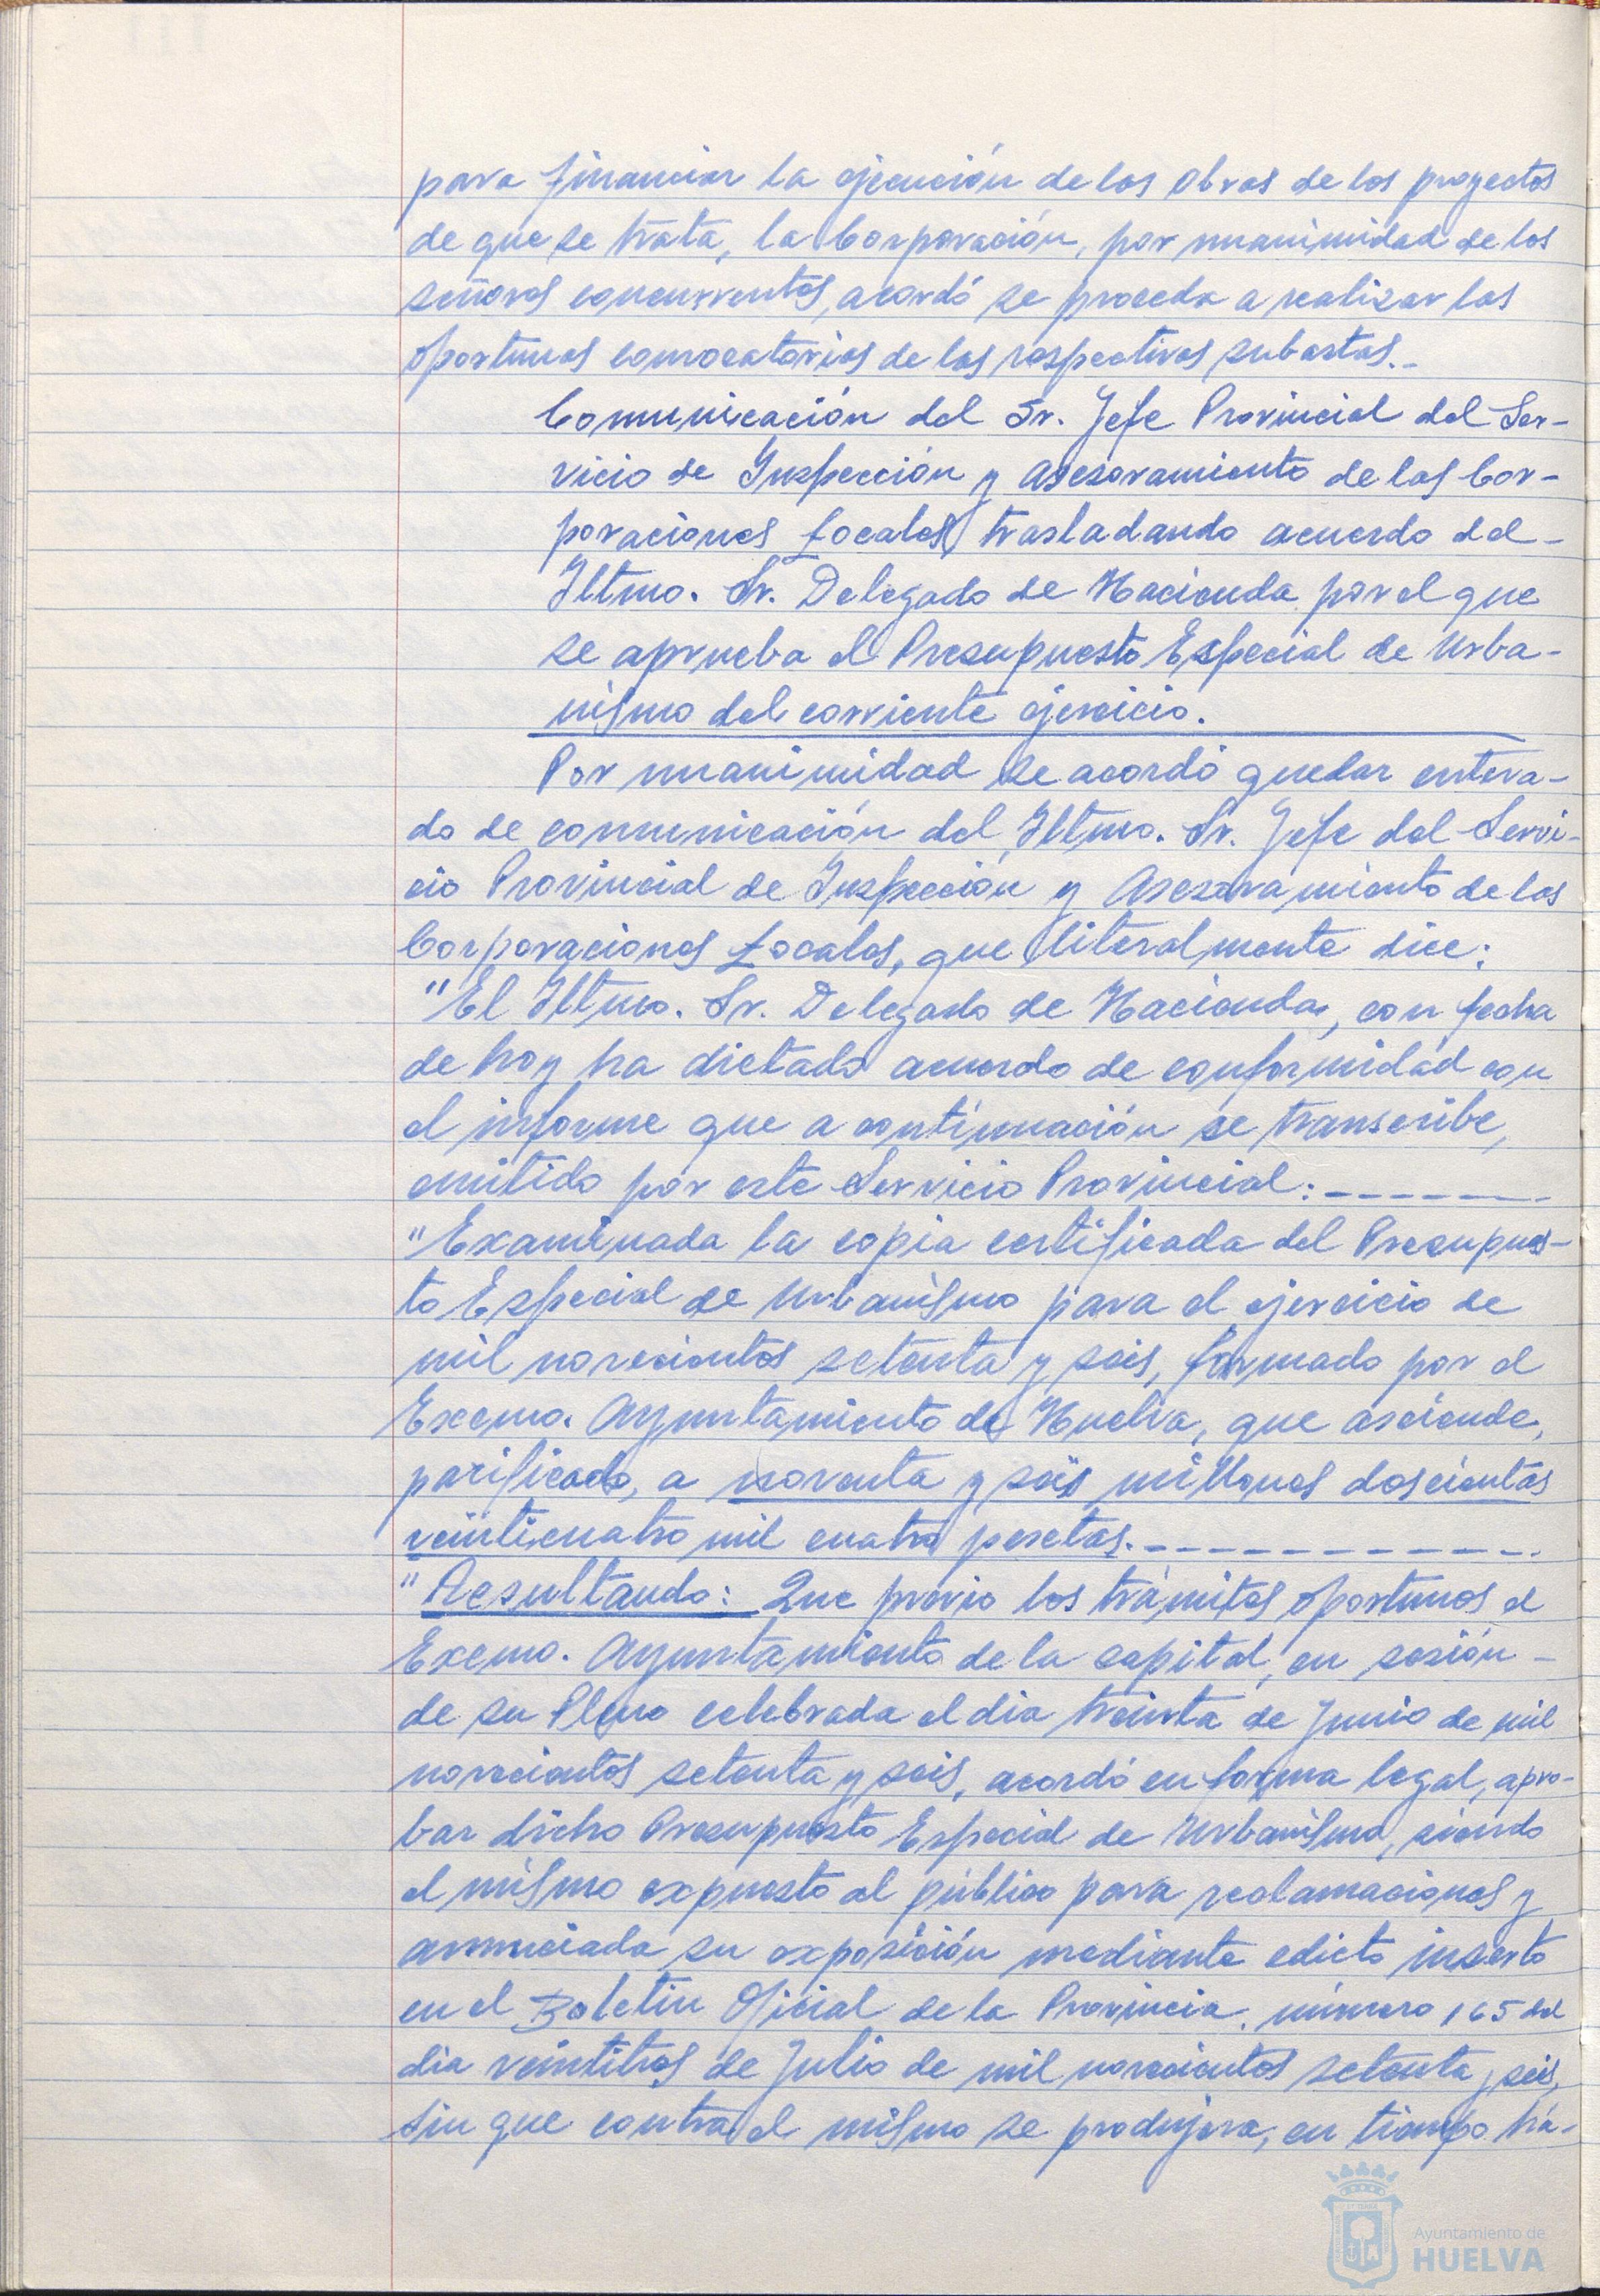 para financiar la ejecución de las obras de los proyectos
de que se trata, la Corporación, por unanimidad de los
señores concurrentes, acordó se proceda a realizar las
oportunas convocatorias de las respectivas subastas.-
Comunicación del Sr. Jefe Provincial del Ser-
vicio de Inspección y Asesoramiento de las Cor-
poraciones Locales, trasladando acuerdo del-
Iltmo. Sr. Delegado de Hacienda por el que
se aprueba el Presupuesto Especial de Urba-
nismo del corriente ejercicio.
Por unanimidad se acordó quedar entera-
do de comunicación del Iltmo. Sr. Jefe del Servi-
cio Provincial de Inspección y Asesoramiento de las
Corporaciones Locales, que literalmente dice:
"El Iltmo. Sr. Delegado de Hacienda, con fecha
de hoy ha dictado acuerdo de conformidad con
el informe que a continuación se transcribe,
emitido por este Servicio Provincial:-------
"Examinada la copia certificada del Presupues-
to Especial de Urbanismo para el ejercicio de
mil novecientos setenta y seis, formado por el
Excmo. Ayuntamiento de Huelva, que asciende,
parificado, a noventa y seis millones doscientas
veinticuatro mil cuatro pesetas.------------
"Resultando: Que previo los trámites oportunos el
Excmo. Ayuntamiento de la capital, en sesión -
de su Pleno celebrada el dia treinta de Junio de mil
novecientos setenta y seis, acordó en forma legal, apro-
bar dicho Presupuesto Especial de Urbanismo, siendo
el mismo expuesto al público para reclamaciones y
anunciada su exposición mediante edicto inserto
en el Boletin Oficial de la Provincia, número 165 del
dia veintitres de Julio de mil novecientos setenta y seis,
sin que contra el mismo se produjera, en tiempo há-
Ayuntamiento de
HUELVA